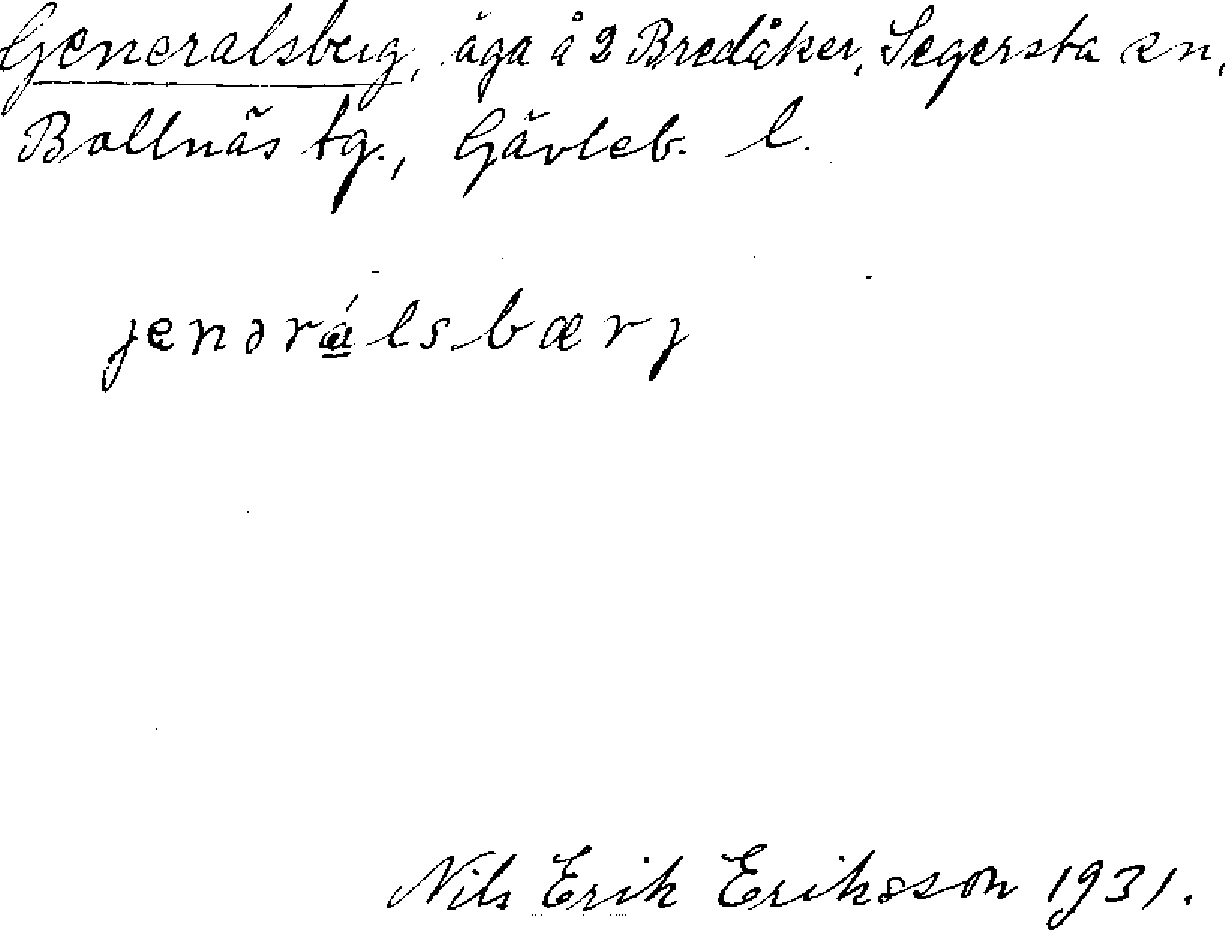 Generalsberg, äga å 2 Bredåker, Segersta sn,
Bollnäs tg., Gävleb. l.
jenərálsbærj
Nils Erik Eriksson 1931.